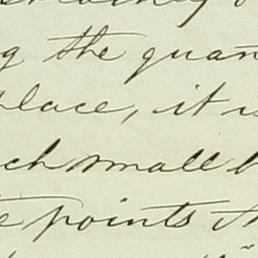 g the quan
place, it i
ch small b
te points